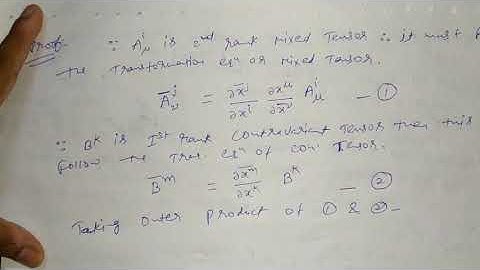 Proof- ∵ A^i_μ is 2nd rank mixed Tensor ∴ it must
the Transformation eqn of mixed Tensor.
Ā^j_ν = ∂x̄^j/∂x^i ∂x^μ/∂x̄^ν A^i_μ — ①
∵ B^k is Ist rank Contravarient Tensor then this
follow the Tras. eqn of con. Tensor.
B̄^m = ∂x̄^m/∂x^k B^k — ②
Taking Outer Product of ① & ②-